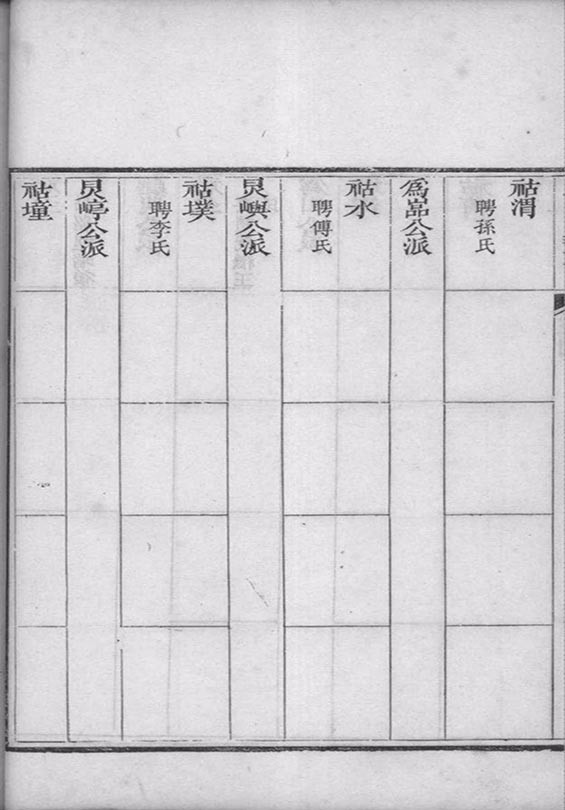 祜渭
聘孫氏
為嵓公派
祜水
聘傅氏
炅嶼公派
祜墣
聘李氏
炅崞公派
祜墥